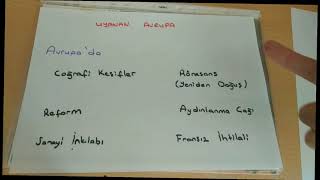 UYANAN AVRUPA
Avrupa'da
Coğrafi Keşifler
Rönesans
(Yeniden Doğuş)
Reform
Aydınlanma Çağı
Sanayi İnkılabı
Fransız İhtilali